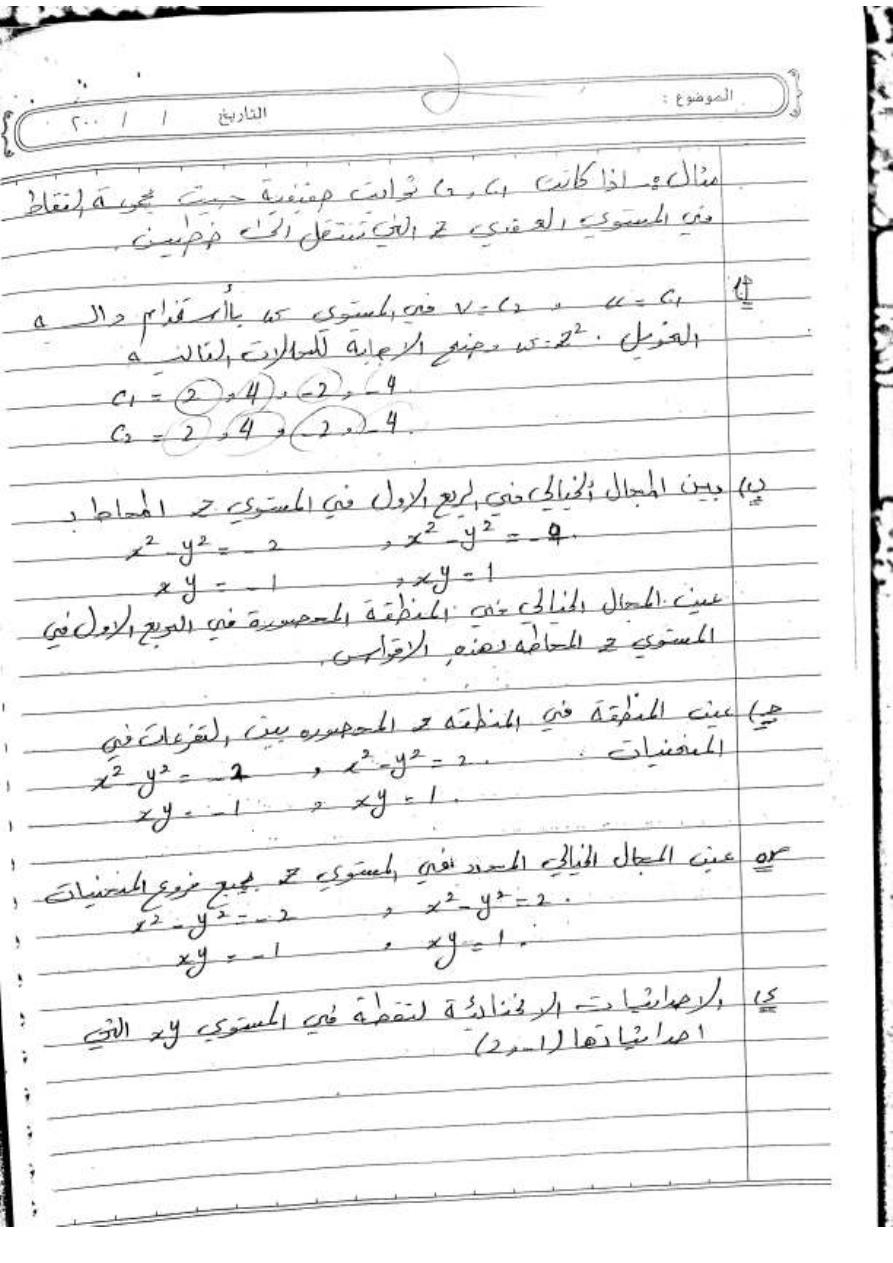 الموضوع :
التاريخ / / ٢٠٠
مثال:- اذا كانت C₁ , C₂ ثوابت حقيقية حيث مجموعة النقاط
في المستوي العقدي z التي تنتقل الى خطين .
أ) u = C₁ , v = C₂ في المستوي w بأستخدام دالـــة
التحويل . w = z² وضح الاجابة للحالات التالية
C₁ = 2 , 4 , -2 , -4
C₂ = 2 , 4 , -2 , -4 .
ب) بين المجال الخيالي في الربع الاول في المستوي z المحاط بـ
x² - y² = - 2 , x² - y² = -
xy = - 1 , xy = 1
عين المجال الخيالي في المنطقة المحصورة في الربع الاول في
المستوي z المحاطه بهذه الاقواس .
جـ) عين المنطقة في المنطقه z المحصوره بين التفرعات في
المنحنيات .
x² - y² = - 2 , x² - y² = 2 .
xy = - 1 , xy = 1 .
عين المجال الخيالي المحدد في المستوي z بجميع فروع المنحنيات
x² - y² = - 2 , x² - y² = 2 .
xy = - 1 , xy = 1 .
الاحداثيات الانحنائية لنقطة في المستوي xy التي
احداثياتها (2 , -1)